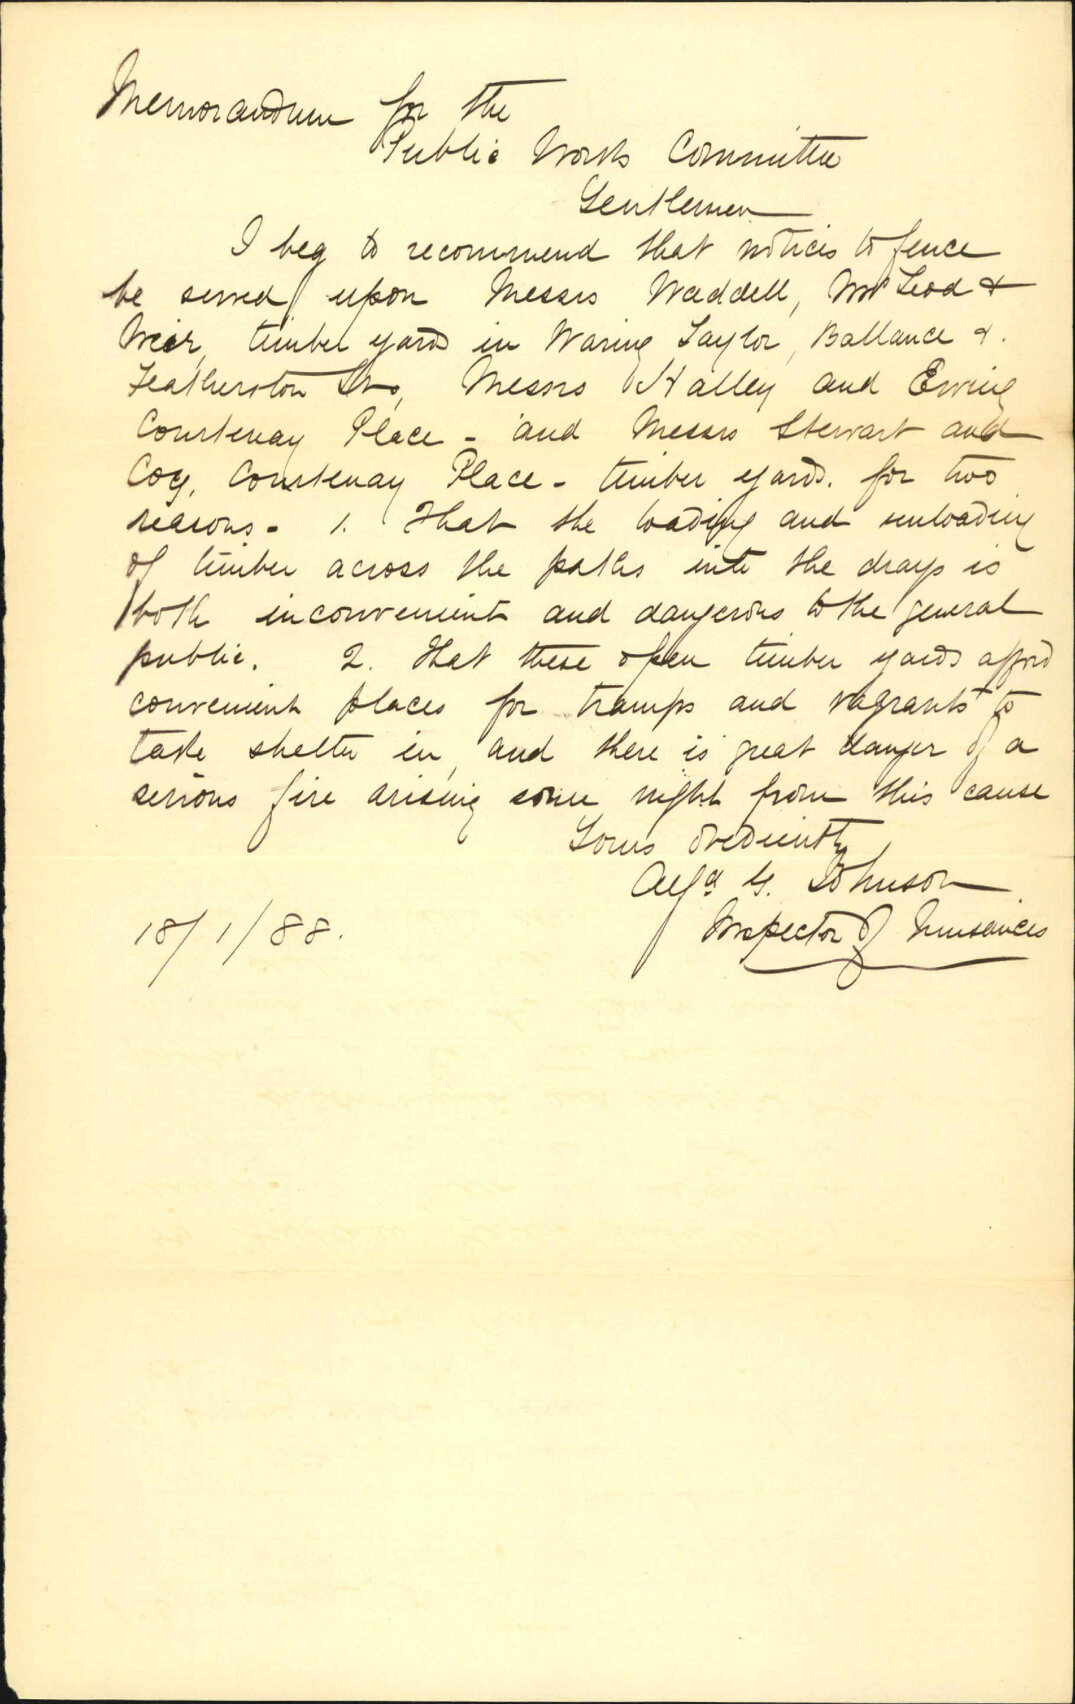 Memorandum for the
Public Works Committee
Gentlemen
I beg to recommend that notices to fence
be served upon Messrs Waddell, McLeod &
Weir, timber yards in Waring Taylor, Ballance &
Featherston Sts, Messrs Halley and Ewing
Courtenay Place - and Messrs Stewart and
Coy, Courtenay Place - timber yards. for two
reasons - 1. That the loading and unloading
of timber across the paths into the drays is
both inconvenient and dangerous to the general
public. 2. That these open timber yards afford
convenient places for tramps and vagrants to
take shelter in, and there is great danger of a
serious fire arising some night from this cause
Yours obediently
Alfd G. Johnson
Inspector of Nuisances
18/1/88.